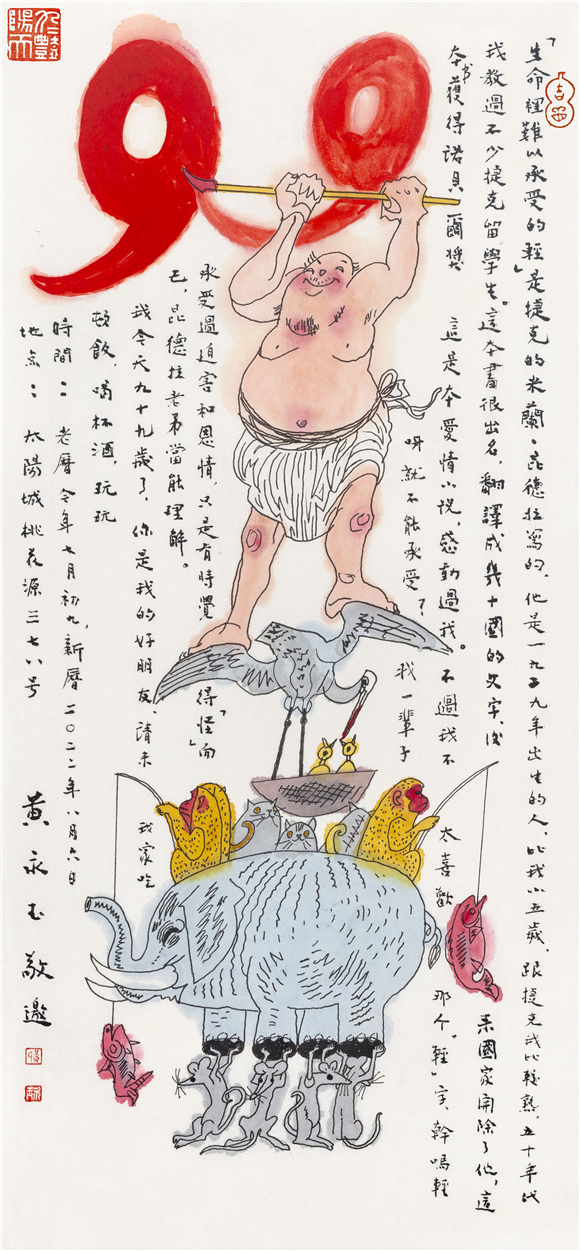 99
「生命裡難以承受的輕」是捷克的米蘭·昆德拉寫的，他是一九二九年出生的人，比我小五歲，跟捷克我比較熟，五十年代
我教過不少捷克留學生。這本書很出名，翻譯成幾十國的文字，後來國家開除了他，這
本書獲得諾貝爾獎 這是本愛情小說，感動過我。不過我不太喜歡那个「輕」字，幹嗎輕
呀就不能承受？我一輩子
承受過迫害和恩情，只是有時覺得「怪」而
已，昆德拉老弟當能理解。
我今天九十九歲了，你是我的好朋友，請來我家吃
頓飯，喝杯酒，玩玩
時間：老曆今年七月初九，新曆二〇二二年八月六日
地点：太陽城桃花源三七八号
黃永玉敬邀